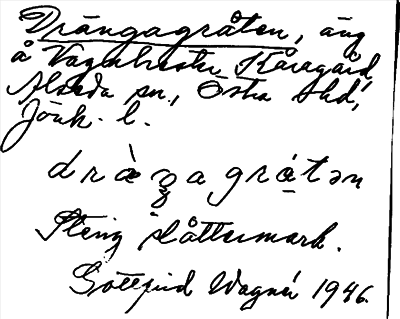 Drängagråten, äng
å Vagnhester Kåragård,
Alseda sn., Östra hd,
Jönk. l.
dràŋagrå̀tən
Stenig slåttermark.
Gottfrid Wagnér 1946.